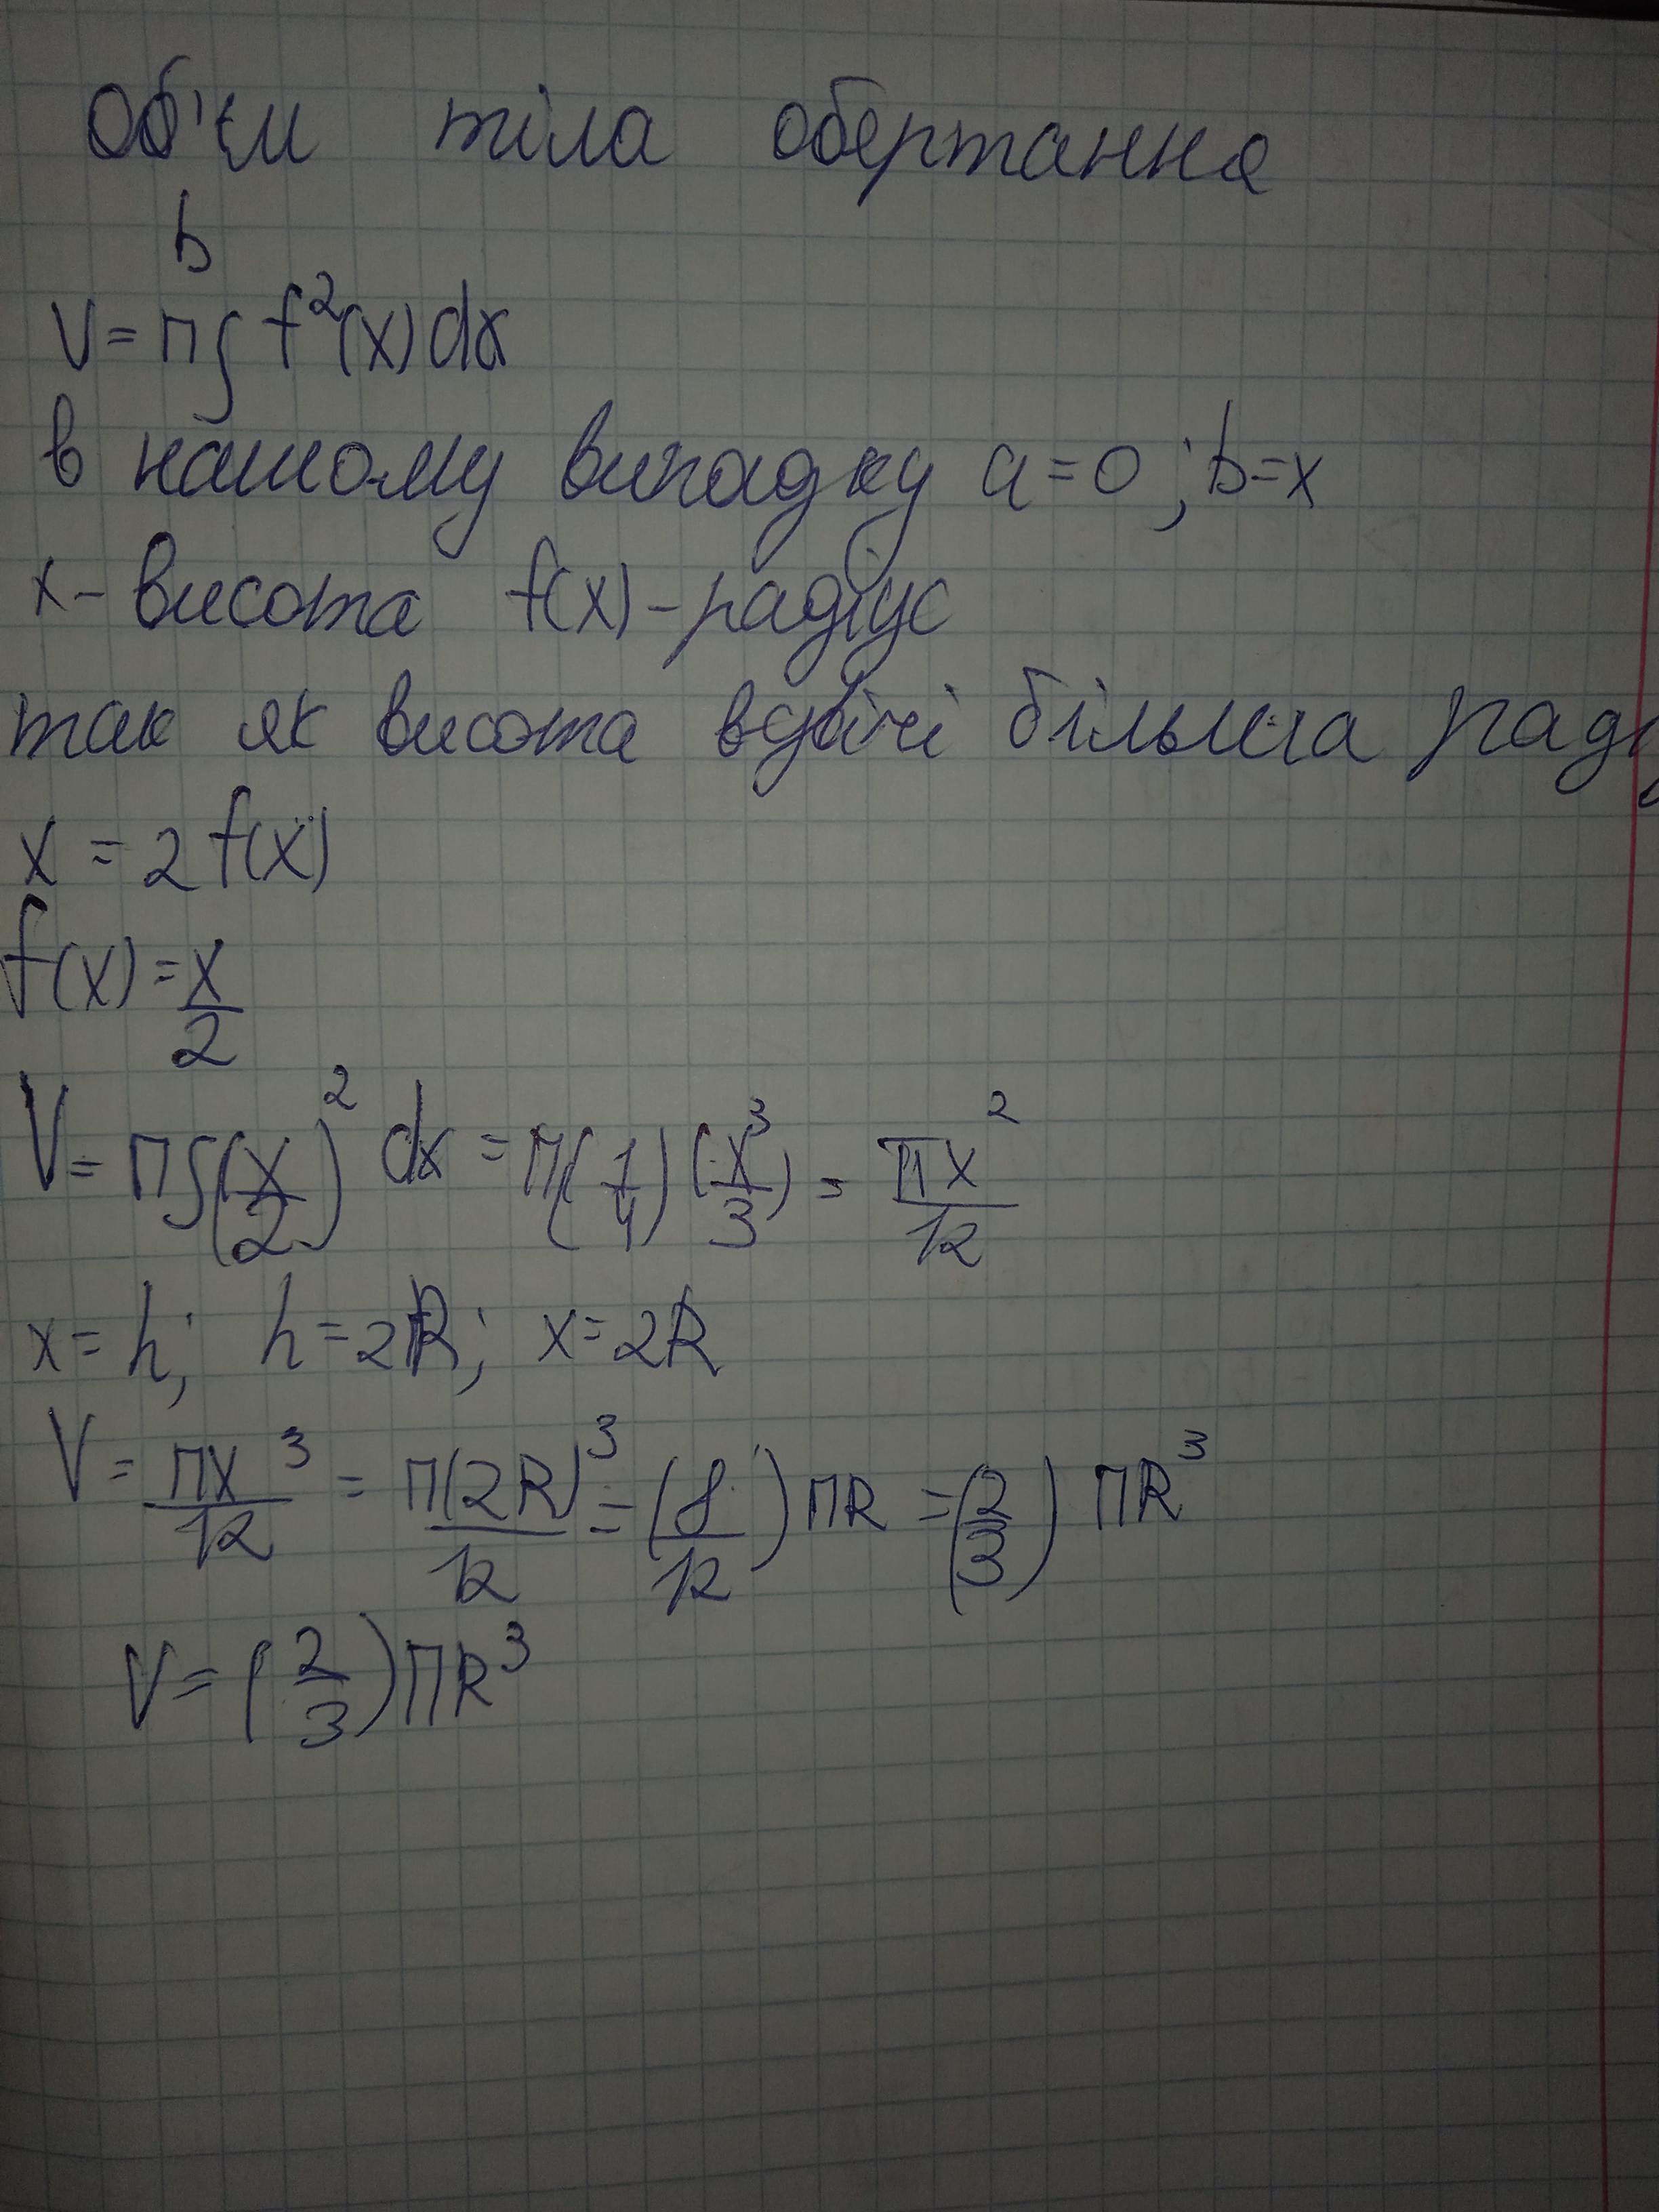 Об'єм тіла обертання
b
V = П∫ f²(x) dx
в нашому випадку a = 0 ; b = x
x - висота f(x) - радіус
так як висота вдвічі більша
x = 2 f(x)
f(x) = x/2
V = П∫(x/2)² dx = П(1/4)(x³/3) = Пx²/12
x = h; h = 2R; x = 2R
V = Пx³/12 = П(2R)³/12 = (8/12) ПR = (2/3) ПR³
V = (2/3)ПR³